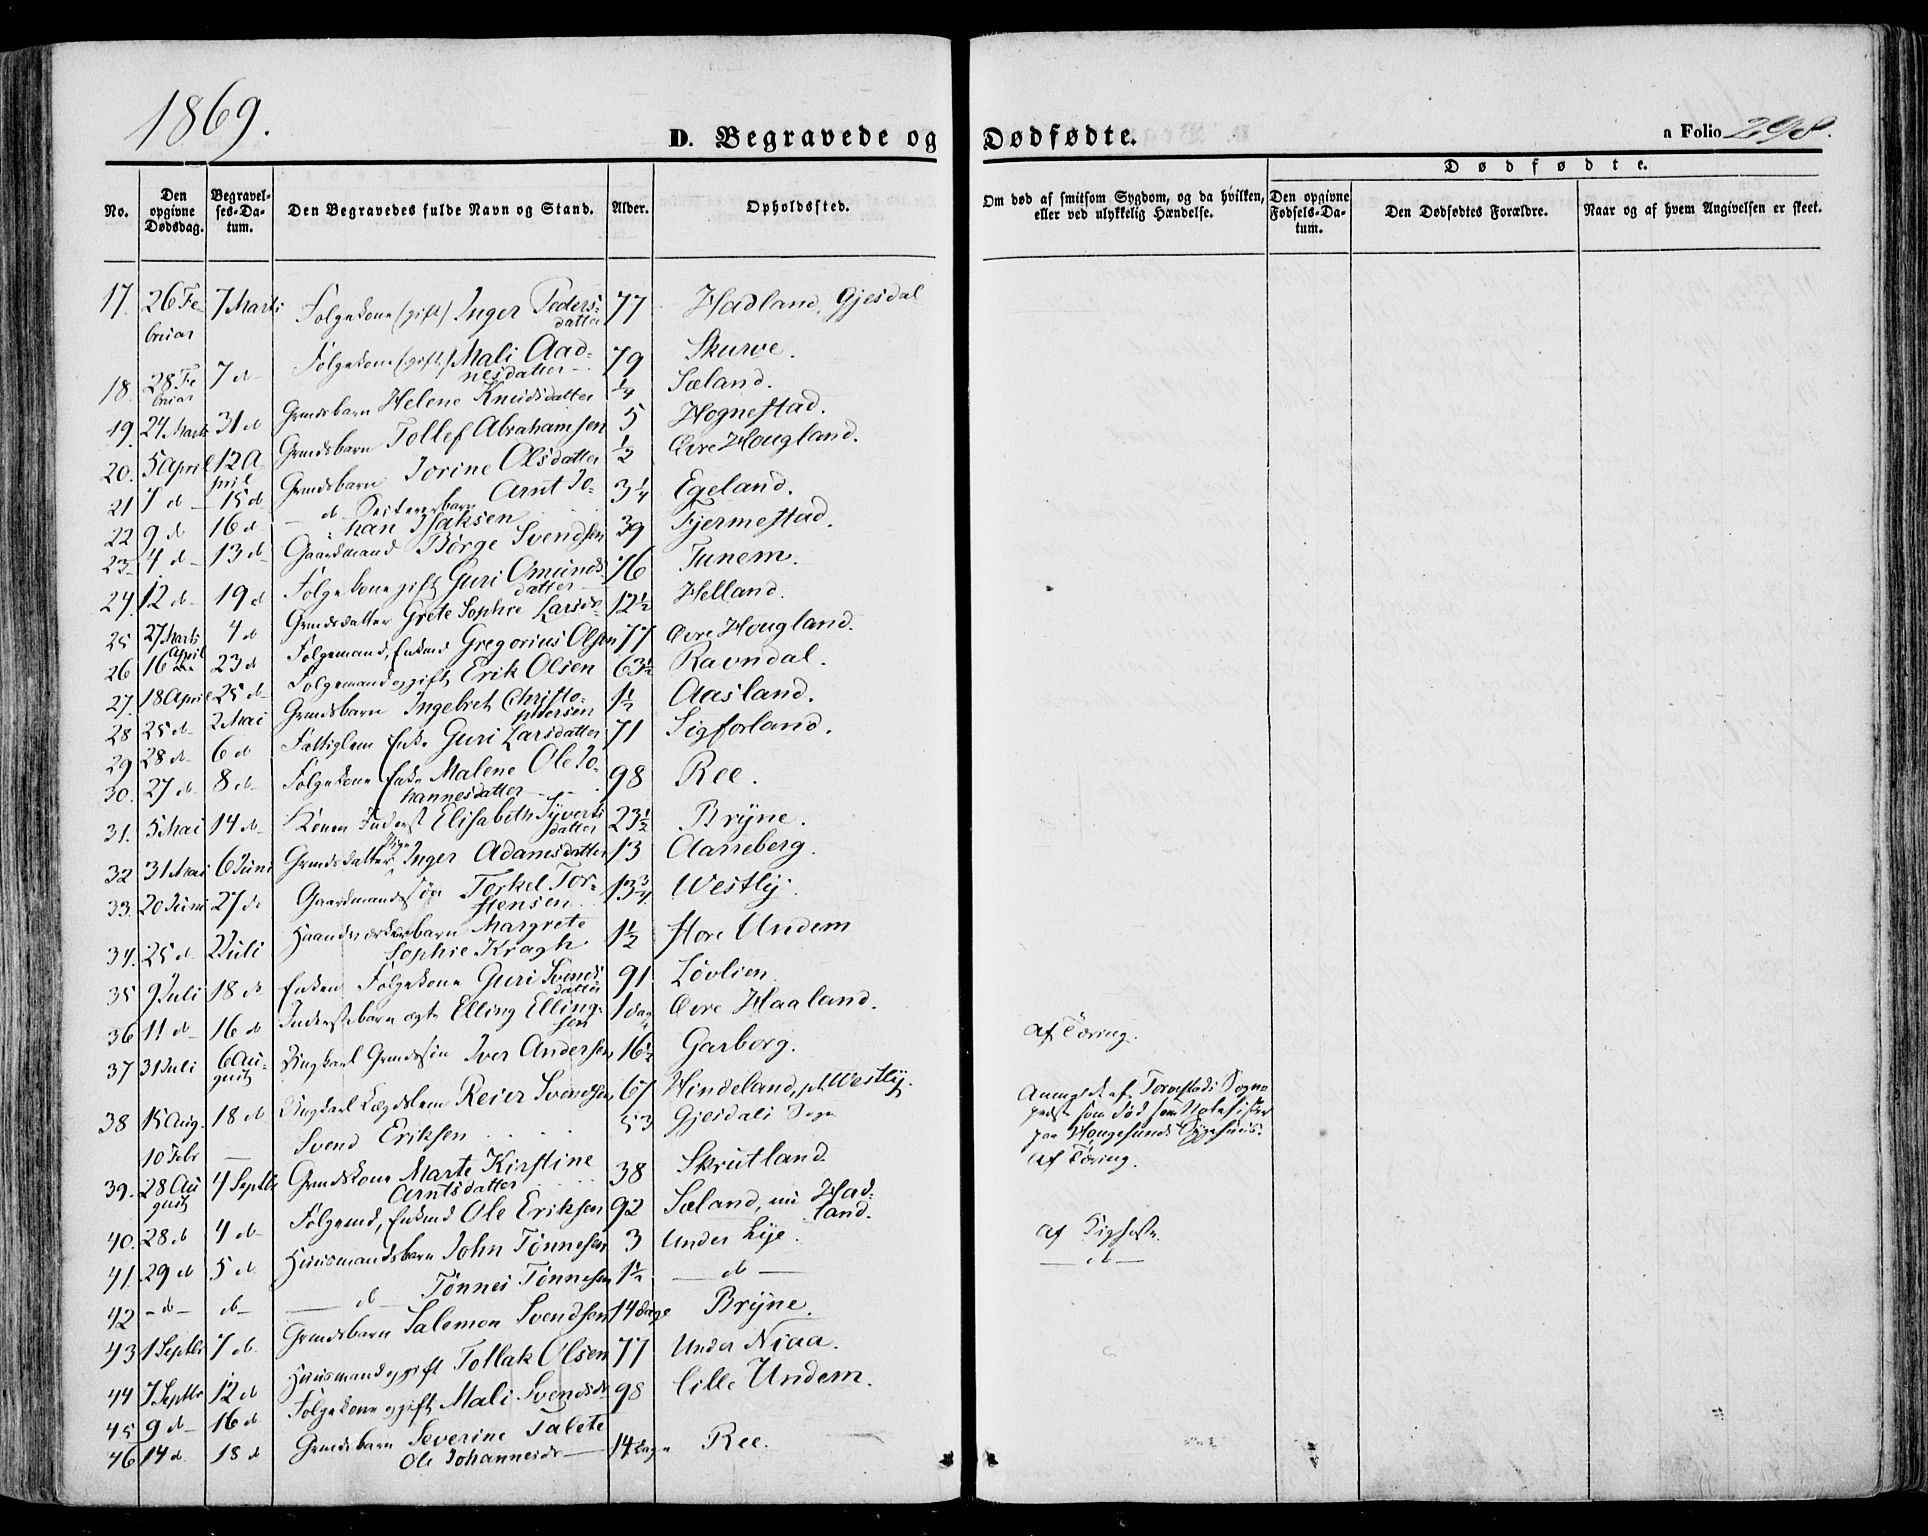 1869.
D. Begravede og Dødfødte.
a Folio 298.
Dødfødte.
No. Den opgivne Dødsdag. Begravelses-Datum. Den Begravedes fulde Navn og Stand. Alder. Opholdssted. Om død af smitsom Sygdom, og da hvilken, eller ved ulykkelig Hændelse. Den opgivne Fødsels-Datum. Den Dødfødtes Forældre. Naar og af hvem Angivelsen er skeet.
17. 26 Februar 7 Marts Folgekone (gift) Inger Pedersdatter 77 Hadland, Gjesdal
18. 28 Februar 7 d Folgekone (gift) Mali Aadnesdatter 79 Skurve.
19. 24 Marts 31 d Grmdsbarn Helene Knudsdatter 1/4 Sæland.
20. 5 April 12 April Grmdsbarn Tollef Abrahamsen 5 Hognestad.
21 7 d 15 d Grmdsbarn Jorine Olsdatter 1/2 Øvre Hougland.
22 9 d 16 d d barn Arnt Johan Isaksen 3 1/4 Egeland.
23 4 d 13 d Gaardmand Børge Svendsen 39 Fjermestad.
24. 12 d 19 d Folgekone gift Guri Omundsdatter 76 Tunem.
25 27 Marts 4 d Grmdsdatter Grete Sophie Larsd 12 1/2 Helland.
26 16 April 23 d Folgemand, Enkmd Gregorius Olsen 77 Øvre Hougland.
27. 18 April 25 d Folgemand gift Erik Olsen 63 1/2 Ravndal.
28 25 d 2 Mai Grmdsbarn Ingebret Christophersen 1 1/2 Aasland.
29 28 d 6 d Fattiglem Enke Guri Larsdatter 71 Sigforland.
30. 27 d 8 d Folgekone Enke Malene Ole Johannesdatter 98 Ree.
31. 5 Mai 14 d Konen Inderst Elisabeth Syvertsdatter 23 1/2 Bryne.
32 31 Mai 6 Juni Grmdsdatter Pige Inger Adamsdatter 13 Aarreberg.
33. 20 Juni 27 d Gaardmandssøn Torkel Torstensen 13 3/4 Westly.
34. 25 d 2 Juli Haandværkerbarn Margrete Sophie Kragh 1 1/2 Store Undem
35 9 Juli 18 d Enken Folgekone Guri Svendsdatter 91 Løvlien.
36 11 d 16 d Inderstebarn ægte Elling Ellingsen 1 dag Øvre Haaland.
37 31 Juli 6 August Ungkarl Grmdssøn Iver Andersen 16 1/2 Garborg. af Tæring.
38 15 Aug. 18 d Ungkarl Lægdslem Reier Svendsen 67 Hindeland, Westly.
10 Febr — Svend Eriksen 53 Gjesdals Sogn Anmeldt af Torvestads Sogneprest som død paa Haugesunds Sygehuus.
39. 28 August 4 Septbr Grmdskone Marte Kirstine Arntsdatter 38 Skrutland. af Tæring.
40. 28 d 4 d Folgemd, Enkmd Ole Eriksen 92 Sæland, nu Hadland.
41. 29 d 5 d Huusmandsbarn John Tønnesen 3 Under Lye. af Kighoste.
42 - d - d d Tønnes Tønnesen 1 1/2 — d — — d —
43 1 Septbr 7 d Grmdsbarn Salemon Svendsen 14 dage Bryne.
44 7 Septbr 12 d Huusmand gift Tollak Olsen 77 Under Niaa.
45 9 d 16 d Folgekone gift Mali Svendsd 98 Lille Undem.
46 14 d 18 d Grmdsbarn Severine Talete Ole Johannesd 14 dage Ree.